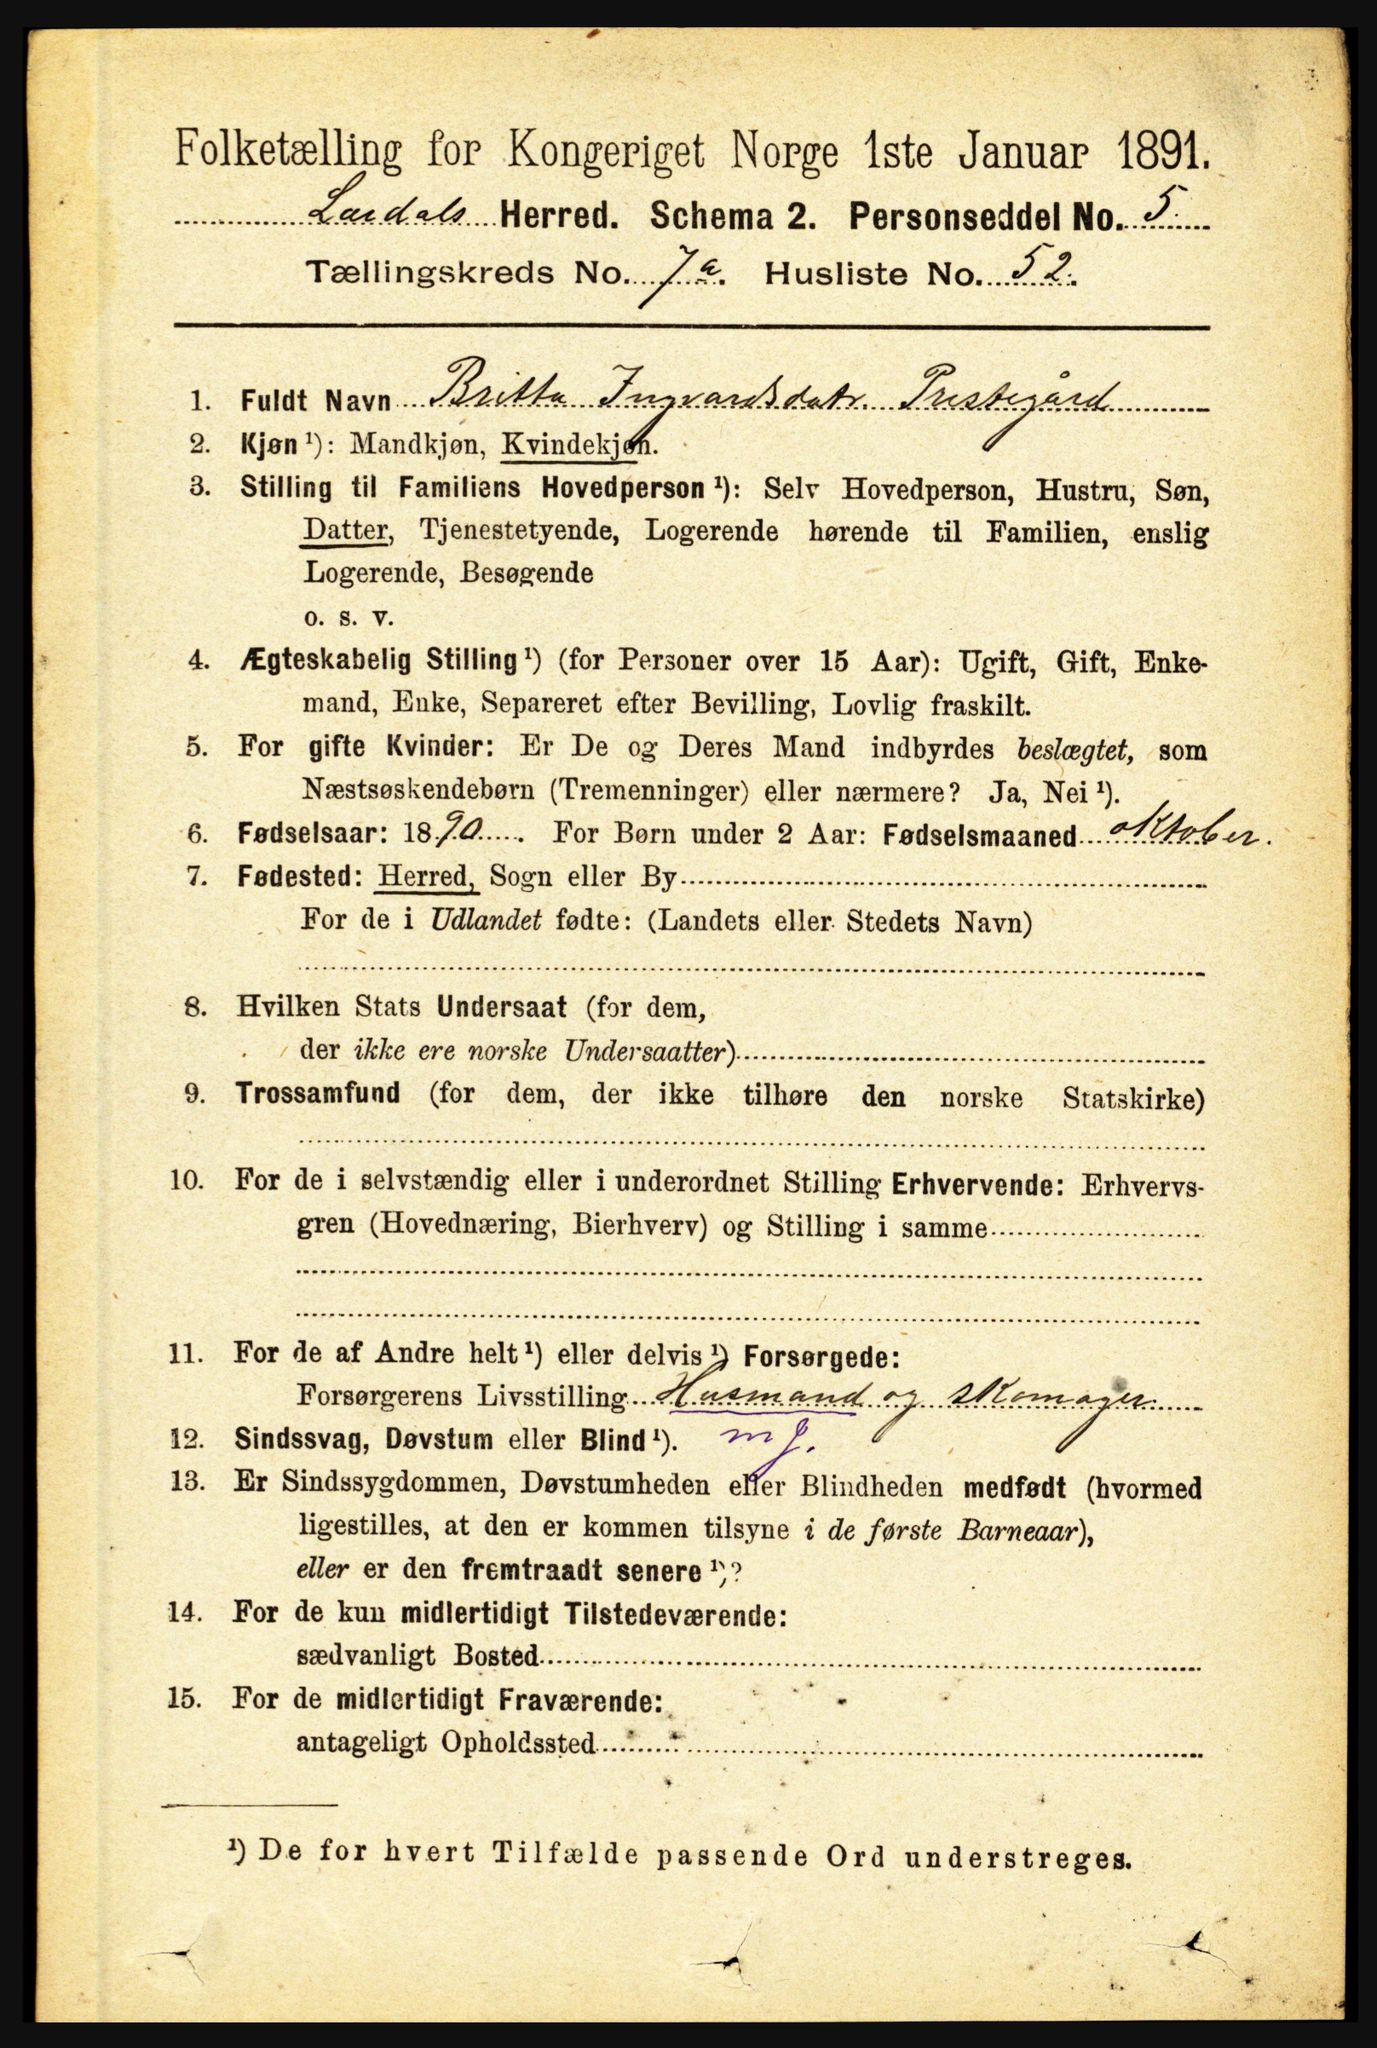 Folketælling for Kongeriget Norge 1ste Januar 1891.
Lærdals Herred. Schema 2. Personseddel No. 5.
Tællingskreds No. 7a. Husliste No. 52.
1. Fuldt Navn Britta Ingvardsdatr. Prestegård
2. Kjøn ¹): Mandkjøn, Kvindekjøn.
3. Stilling til Familiens Hovedperson ¹): Selv Hovedperson, Hustru, Søn,
Datter, Tjenestetyende, Logerende hørende til Familien, enslig
Logerende, Besøgende
o. s. v.
4. Ægteskabelig Stilling ¹) (for Personer over 15 Aar): Ugift, Gift, Enke-
mand, Enke, Separeret efter Bevilling, Lovlig fraskilt.
5. For gifte Kvinder: Er De og Deres Mand indbyrdes beslægtet, som
Næstsøskendebørn (Tremenninger) eller nærmere? Ja, Nei ¹).
6. Fødselsaar: 1890. For Børn under 2 Aar: Fødselsmaaned oktober.
7. Fødested: Herred, Sogn eller By
For de i Udlandet fødte: (Landets eller Stedets Navn)
8. Hvilken Stats Undersaat (for dem,
der ikke ere norske Undersaatter)
9. Trossamfund (for dem, der ikke tilhøre den norske Statskirke)
10. For de i selvstændig eller i underordnet Stilling Erhvervende: Erhvervs-
gren (Hovednæring, Bierhverv) og Stilling i samme
11. For de af Andre helt ¹) eller delvis ¹) Forsørgede:
Forsørgerens Livsstilling Husmand og skomager
12. Sindssvag, Døvstum eller Blind ¹). m j.
13. Er Sindssygdommen, Døvstumheden eller Blindheden medfødt (hvormed
ligestilles, at den er kommen tilsyne i de første Barneaar),
eller er den fremtraadt senere ¹)?
14. For de kun midlertidigt Tilstedeværende:
sædvanligt Bosted
15. For de midlertidigt Fraværende:
antageligt Opholdssted
¹) De for hvert Tilfælde passende Ord understreges.